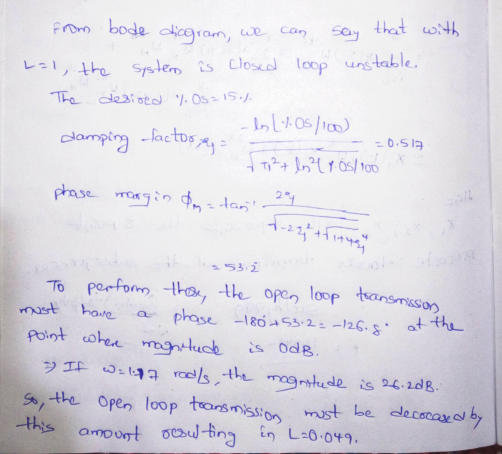 From bode diagram, we can say that with
L=1, the system is closed loop unstable.
The desired %.OS=15.%.
damping factor, ζ = -ln(%.OS/100) / √π²+ln²(%OS/100 = 0.517
phase margin Φm = tan⁻¹ 2ζ / √-2ζ²+√1+4ζ⁴
= 53.2
To perform thar, the open loop transmission
must have a phase -180+53.2=-126.8° at the
point where magnitude is 0dB.
⇒ If ω=1.17 rad/s, the magnitude is 26.2dB.
So, the open loop transmission must be decreased by
this amount resulting in L=0.049.